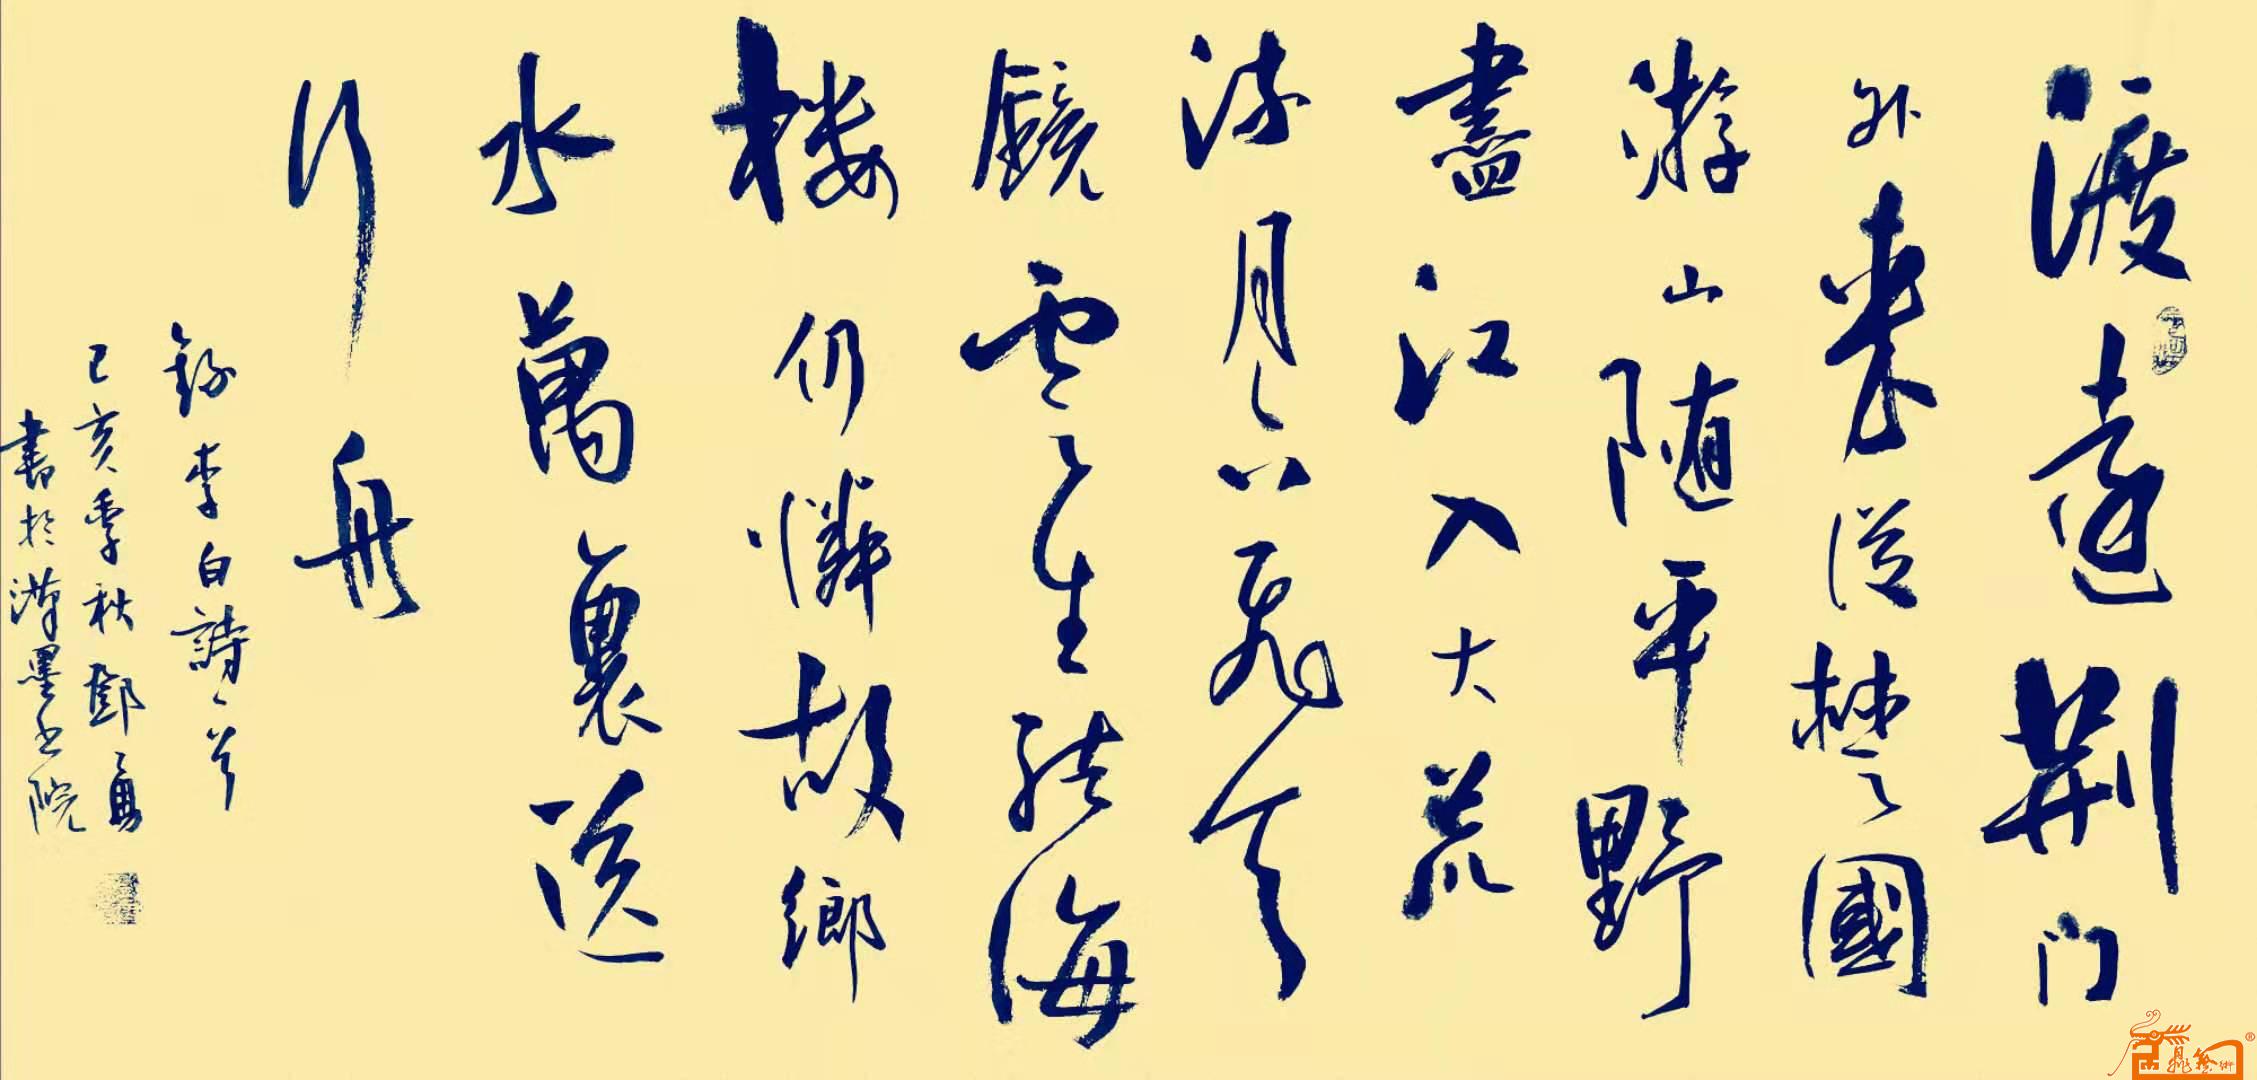 渡遠荆门
外来從楚國
游山随平野
盡江入大荒
流月下飛天
鏡雲生结海
楼仍憐故鄉
水萬裏送
行舟
録李白詩一首
己亥季秋鄧勇
書於漢墨书院